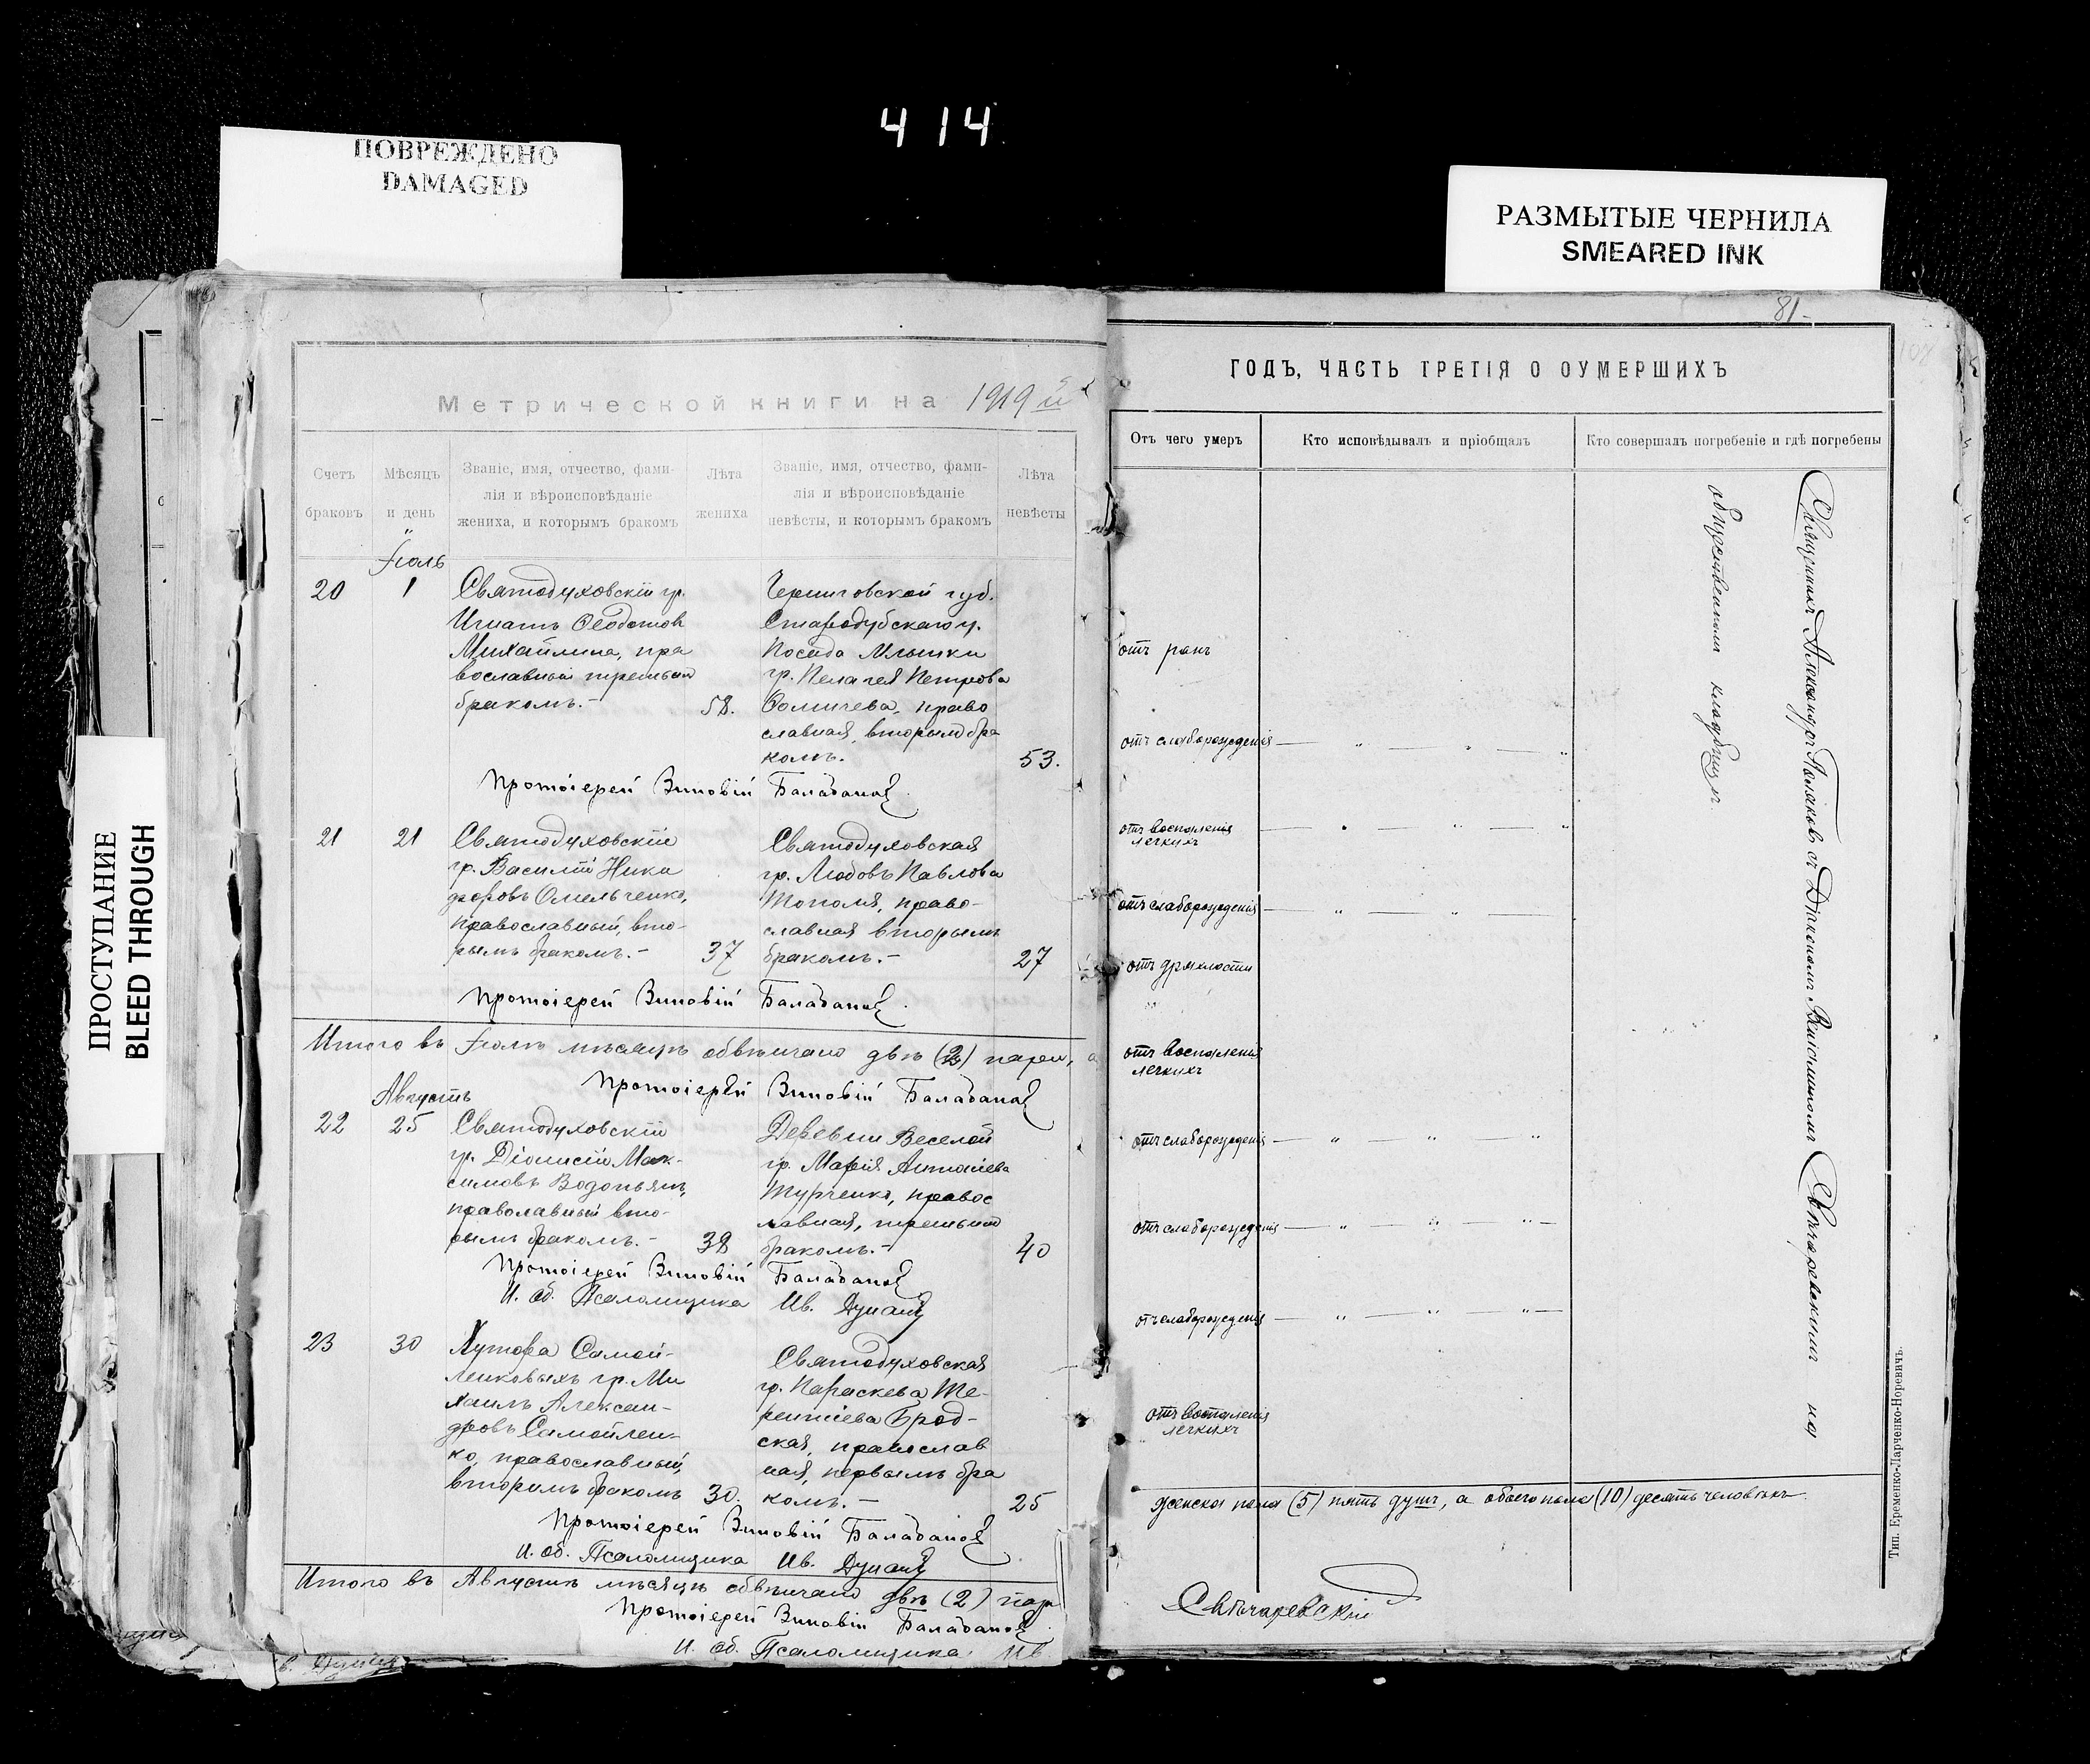 414
ПОВРЕЖДЕНО
DAMAGED
РАЗМЫТЫЕ ЧЕРНИЛА
SMEARED INK
ПРОСТУПАНИЕ
BLEED THROUGH
Метрической книги на 1919 й
Счетъ браковъ
Мѣсяцъ и день
Званіе, имя, отчество, фами-
лія и вѣроисповѣданіе
жениха, и которымъ бракомъ
Лѣта жениха
Званіе, имя, отчество, фами-
лія и вѣроисповѣданіе
невѣсты, и которымъ бракомъ
Лѣта невѣсты
Іюль
20
1
Святодуховскій гр.
Игнатъ Ѳеодотовъ
Михайлина, пра
вославный третьимъ
бракомъ.-
58.
Черниговской губ.
Стародубскаго у.
Посада Млынки
гр. Пелагея Петрова
православная, вторымъ бра
комъ.
53.
Протоіерей Зиновій Балабановъ
21
21
Святодуховскій
гр. Василій Ники
форовъ Омельченко,
православный, вто-
рымъ бракомъ.-
37
Святодуховская
гр. Любовь Павлова
Тополя, право-
славная вторымъ
бракомъ.-
27
Протоіерей Зиновій Балабановъ
Итого въ Іюлѣ мѣсяцѣ обвѣнчано двѣ (2) пары,
Протоіерей Зиновій Балабановъ
Августъ
22
25
Святодуховскій
гр. Діонисій Мак-
симовъ Водопьянъ,
праволавный вто-
рымъ бракомъ.-
38
Деревни Веселой
гр. Марія
Турченко, правос
лавная, третьимъ
бракомъ.-
40
Протоіерей Зиновій Балабановъ
И. об. Псаломщика Ив.
23
30
Хутора Самой-
ленковыхъ гр. Ми
хаилъ Алексан-
дровъ Самойлен-
ко, православный,
вторымъ бракомъ
30.
Святодуховская
гр. Параскева Те-
рентіева Брод-
ская, православ
ная, первымъ бра
комъ.-
25
Протоіерей Зиновій Балабановъ
И. об. Псаломщика Ив.
Итого въ Августѣ мѣсяцѣ обвѣнчано двѣ (2) пары
Протоіерей Зиновій Балабановъ
И. об. Псаломщика Ив
81-
ГОДЪ, ЧАСТЬ ТРЕТІЯ О ОУМЕРШИХЪ
Отъ чего умеръ
Кто исповѣдывалъ и пріобщалъ
Кто совершалъ погребеніе и гдѣ погребены
отъ ранъ
отъ слаборожденія
отъ воспаленія
легкихъ
отъ слаборожденія
отъ дряхлости
отъ воспаленія
легкихъ
отъ слаборожденія
отъ слаборожденія
отъ слаборожденія
отъ воспаленія
легкихъ
Священникъ Александръ Поляковъ съ Діакономъ на
общественномъ кладбищѣ
женска пола (5) пять душъ, а обоего пола (10) десять человѣкъ
Тип. Еременко-Ларченко-Норевичъ.